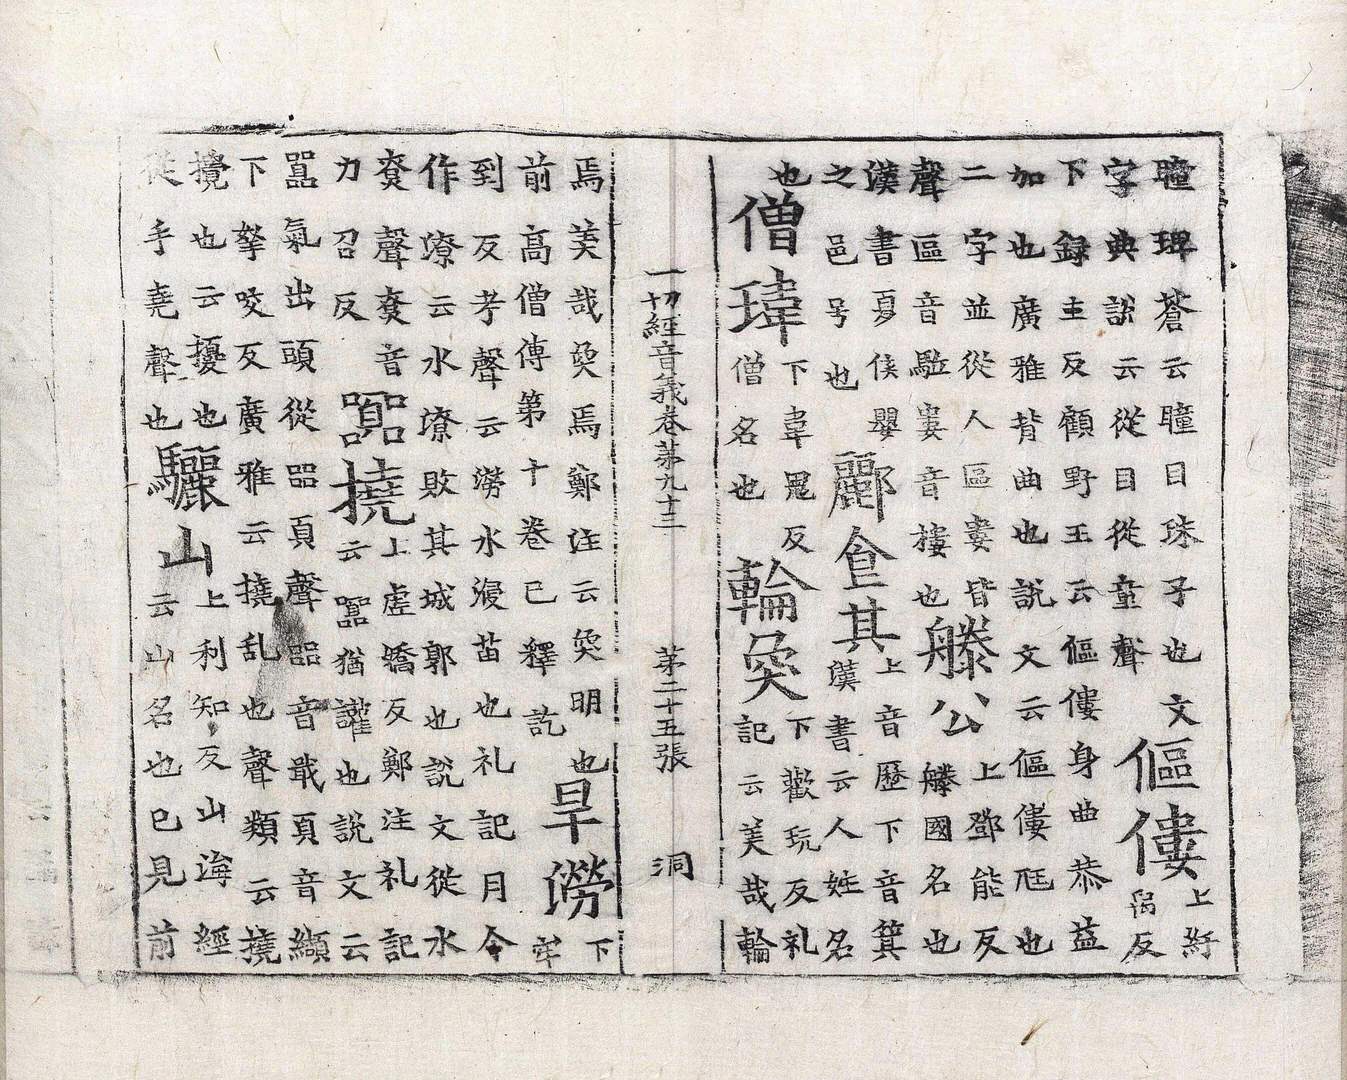 瞳琕蒼云瞳目珠子也文
字典說云從目從童聲
傴僂
上紆
禹反
下録主反顧野王云傴僂身曲恭益
加也廣雅背曲也說文云傴僂尫也
二字並從人區婁皆
聲區音駈婁音摟也
滕公
上鄧能反
滕國名也
漢書夏侯嬰
之邑号也
酈食其
上音歷下音箕
漢書云人姓名
也
僧瑋
下韋鬼反
僧名也
輪奐
下歡玩反礼
記云美哉輪
一切經音義卷第九十三 第二十五張 洞
焉美哉奐焉鄭注云奐明也
前高僧傳第十卷已釋訖
旱澇
下
牢
到反考聲云澇水浸苗也礼記月令
作潦云水潦敗其城郭也說文從水
尞聲尞音
力召反
嚻撓
上虛嬌反鄭注礼記
云嚻猶讙也說文云
嚻氣出頭從㗊頁聲㗊音戢頁音纈
下拏咬反廣雅云撓乱也聲類云撓
攪也云擾也
從手堯聲也
驪山
上利知反山海經
云山名也已見前